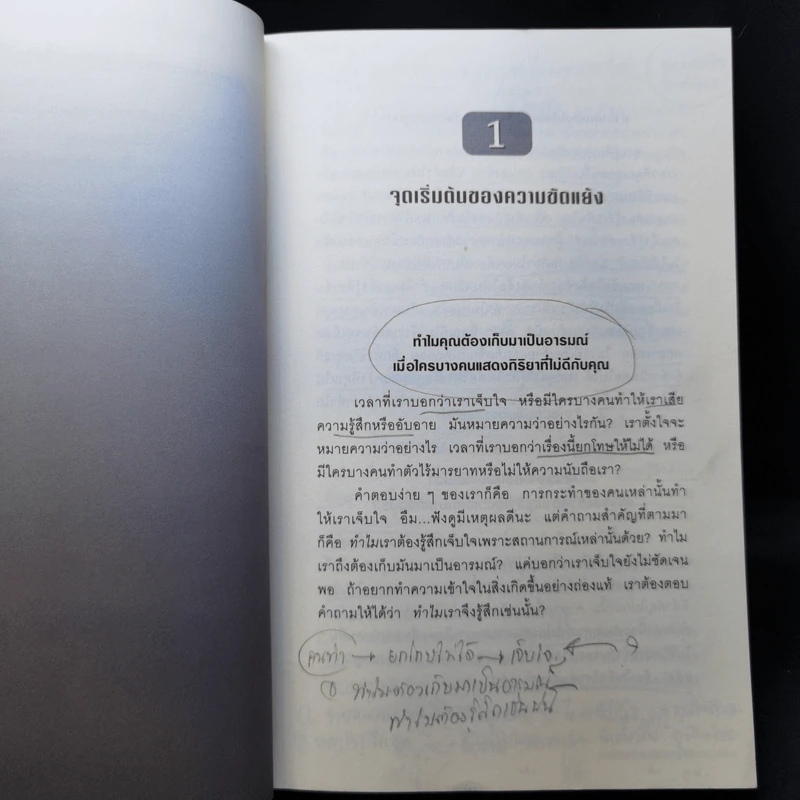 1
จุดเริ่มต้นของความขัดแย้ง
ทำไมคุณต้องเก็บมาเป็นอารมณ์
เมื่อใครบางคนแสดงกิริยาที่ไม่ดีกับคุณ
เวลาที่เราบอกว่าเราเจ็บใจ หรือมีใครบางคนทำให้เราเสีย
ความรู้สึกหรืออับอาย มันหมายความว่าอย่างไรกัน? เราตั้งใจจะ
หมายความว่าอย่างไร เวลาที่เราบอกว่าเรื่องนี้ยกโทษให้ไม่ได้ หรือ
มีใครบางคนทำตัวไร้มารยาทหรือไม่ให้ความนับถือเรา?
คำตอบง่าย ๆ ของเราก็คือ การกระทำของคนเหล่านั้นทำ
ให้เราเจ็บใจ อืม...ฟังดูมีเหตุผลดีนะ แต่คำถามสำคัญที่ตามมา
ก็คือ ทำไมเราต้องรู้สึกเจ็บใจเพราะสถานการณ์เหล่านั้นด้วย? ทำไม
เราถึงต้องเก็บมันมาเป็นอารมณ์? แค่บอกว่าเราเจ็บใจยังไม่ชัดเจน
พอ ถ้าอยากทำความเข้าใจในสิ่งเกิดขึ้นอย่างถ่องแท้ เราต้องตอบ
คำถามให้ได้ว่า ทำไมเราจึงรู้สึกเช่นนั้น?
คนทำ → ยกโทษไม่ได้ → เจ็บใจ
ทำไมต้องเก็บมาเป็นอารมณ์
ทำไมต้องรู้สึกเช่นนั้น